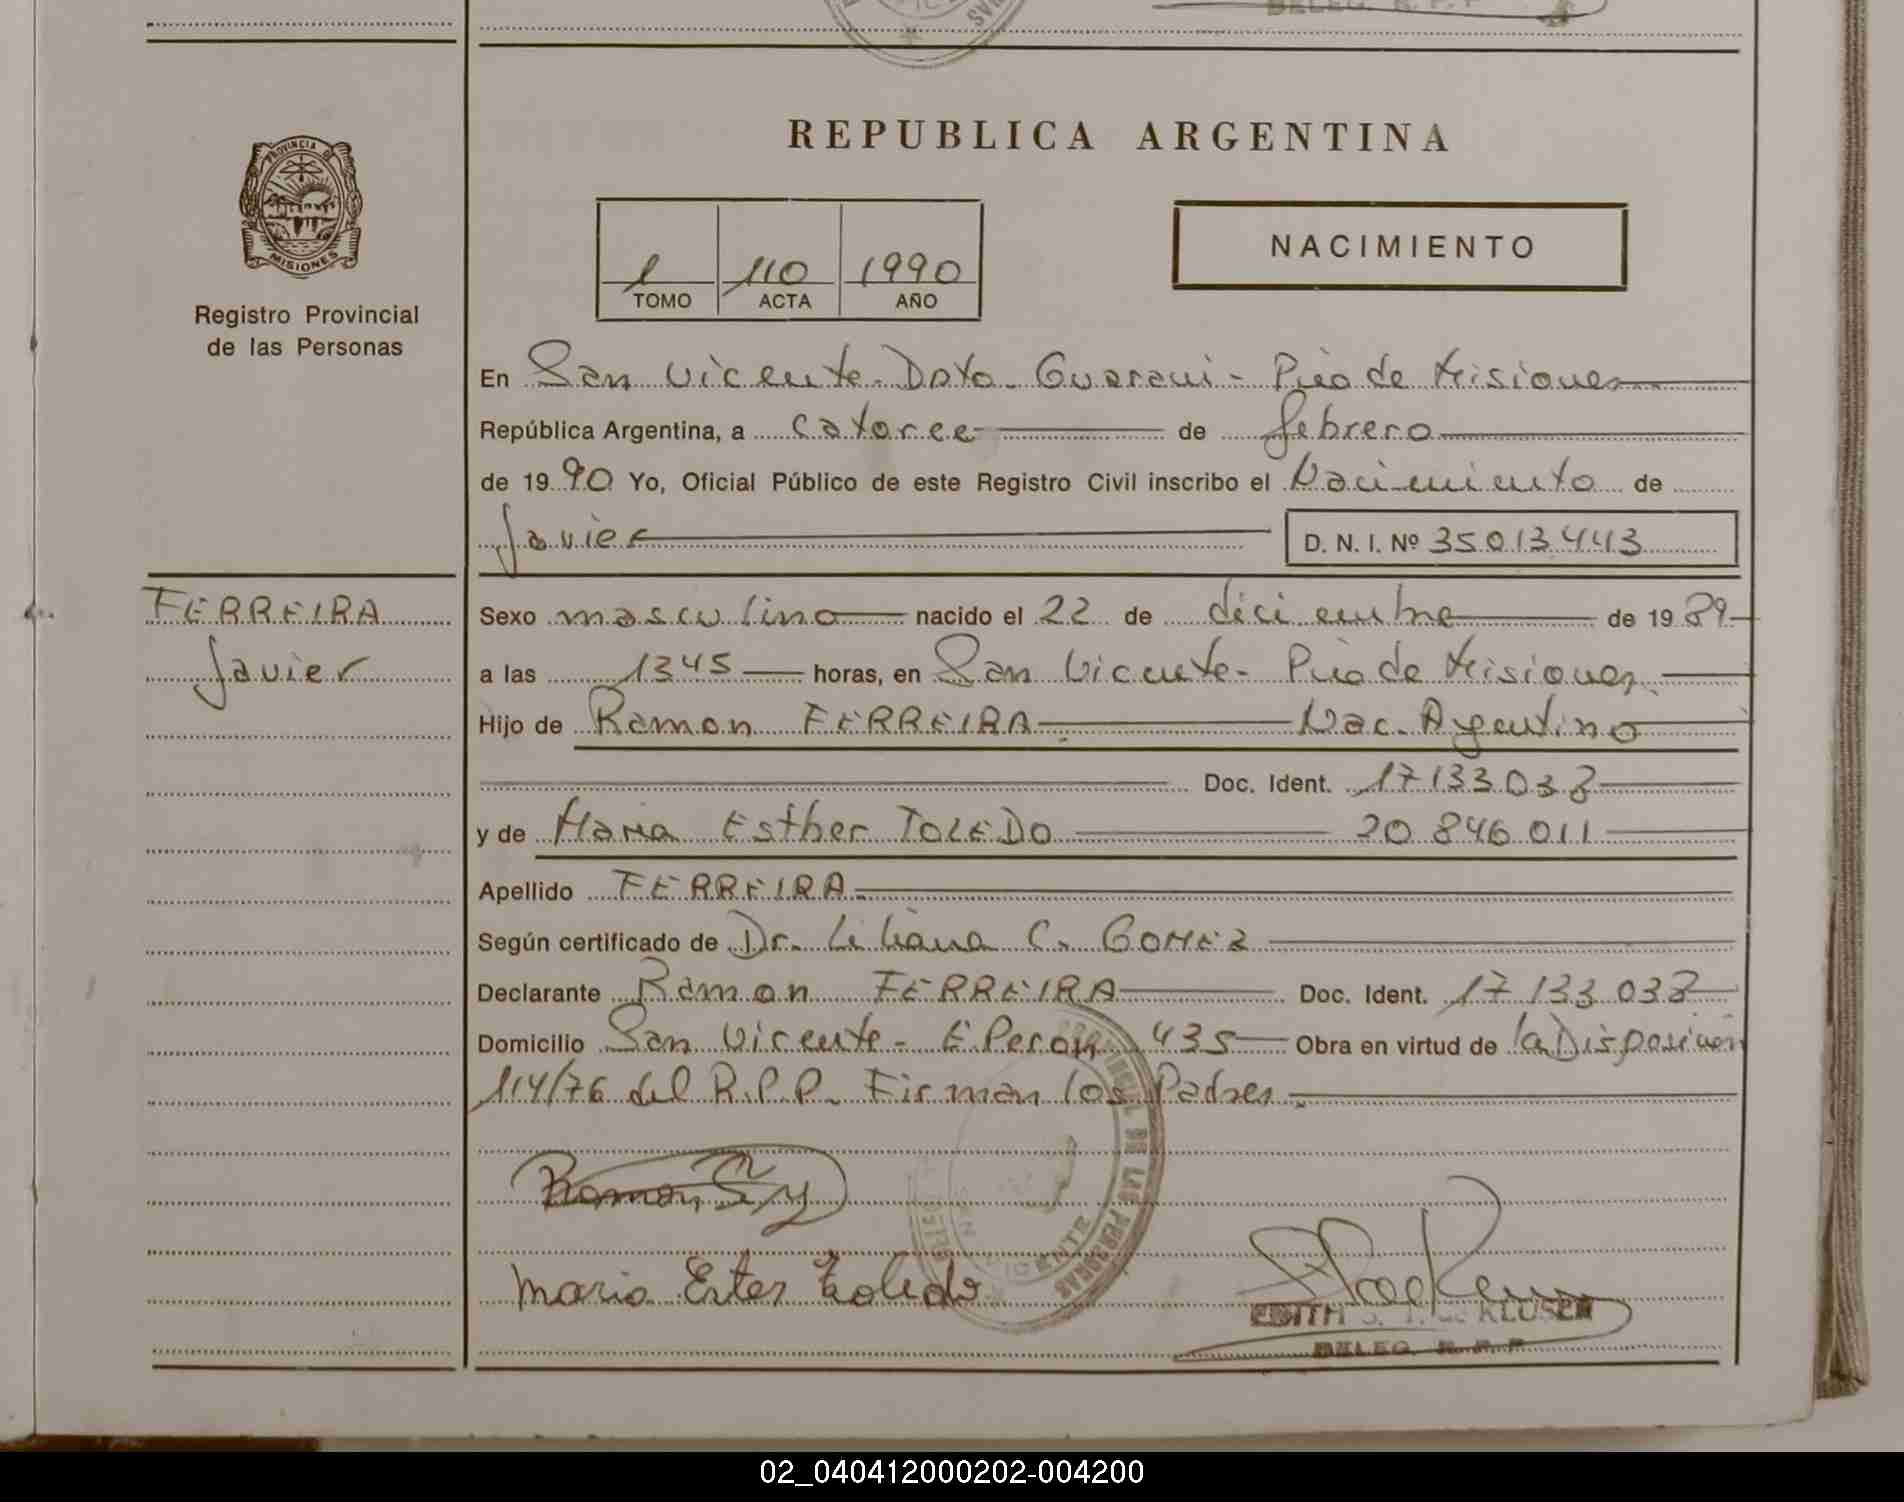 REPUBLICA ARGENTINA
PROVINCIA DE
MISIONES
Registro Provincial
de las Personas
1 110 1990
TOMO ACTA AÑO
NACIMIENTO
En San Vicente - Dpto. Guarani - Pcia de Misiones
República Argentina, a catorce de febrero
de 1990 Yo, Oficial Público de este Registro Civil inscribo el Nacimiento de
Javier D. N. I. Nº 35013443
FERREIRA
Javier
Sexo masculino nacido el 22 de diciembre de 1989
a las 1345 horas, en San Vicente - Pcia de Misiones
Hijo de Ramon FERREIRA Nac. Argentino
Doc. Ident. 17133038
y de Maria Esther TOLEDO 20846011
Apellido FERREIRA
Según certificado de Dr. Liliana C. GOMEZ
Declarante Ramon FERREIRA Doc. Ident. 17133038
Domicilio San Vicente - E Peron 435 Obra en virtud de la Disposición
114/76 del R.P.P. Firman los Padres.
Ramon
Maria Ester Toledo
SAN VICENTE
DE LAS PERSONAS
EDITH S. KLUSER
DELEG. R. P. P.
02_040412000202-004200